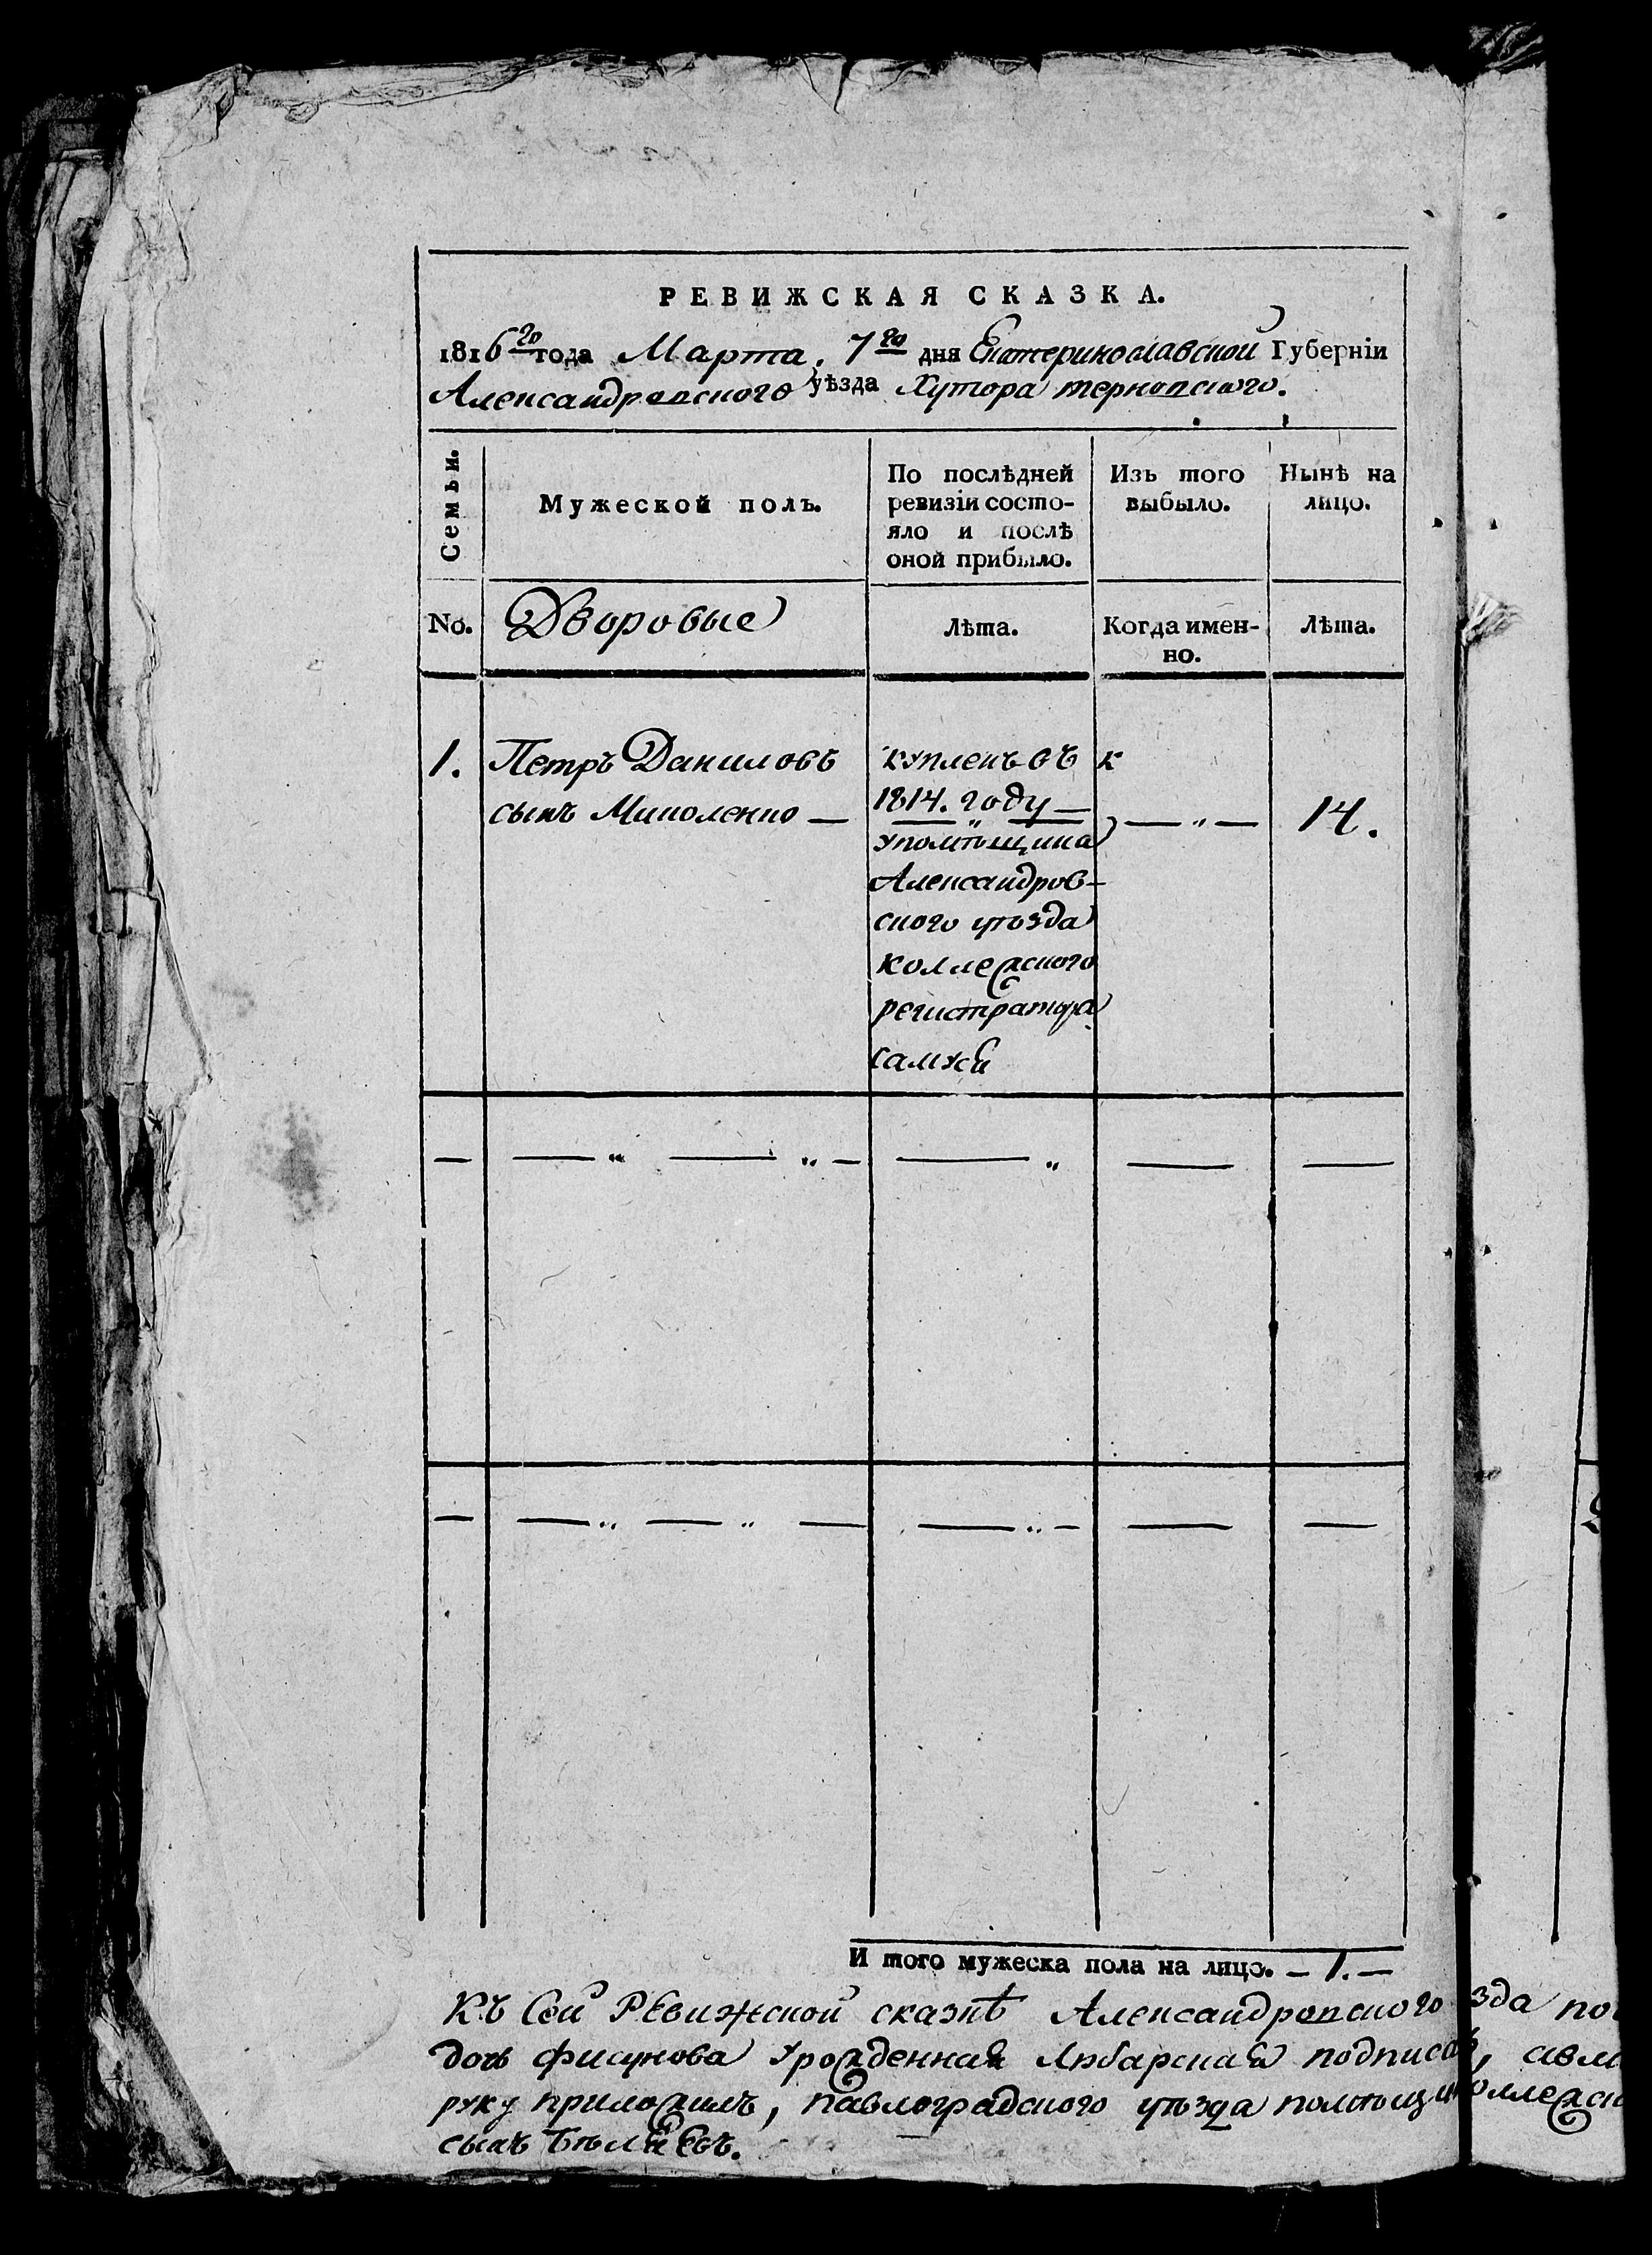 РЕВИЖСКАЯ СКАЗКА.
1816го года Марта, 7го дня Екатеринославской Губерніи
Александровского уѣзда Хутора терновского.
Семьи.
Мужеской полъ.
По послѣдней
ревизіи состо-
яло и послѣ
оной прибыло.
Изъ того
выбыло.
Нынѣ на
лицо.
No.
Дворовые
Лѣта.
Когда имен-
но.
Лѣта.
1. Петръ Даниловъ
сынъ Миколенко —
купленъ въ
1814. году —
упомѣщика
Александров-
ского уѣзда
коллежского
регистратора
14.
И того мужеска пола на лицо. — 1. —
Къ сей Ревижской сказкѣ Александровского
дочь фисунова урожденная подписа
руку приложилъ, павлоградского уѣзда помѣщи
сынъ